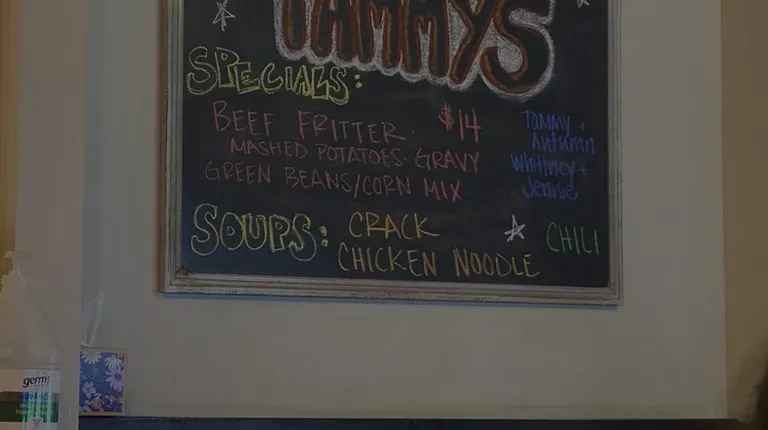 TAMMYS
SPECIALS:
BEEF FRITTER · $14
MASHED POTATOES · GRAVY
GREEN BEANS/CORN MIX
Tammy +
Autumn
Whittney +
Jennie
SOUPS: CRACK
CHICKEN NOODLE
CHILI
germ